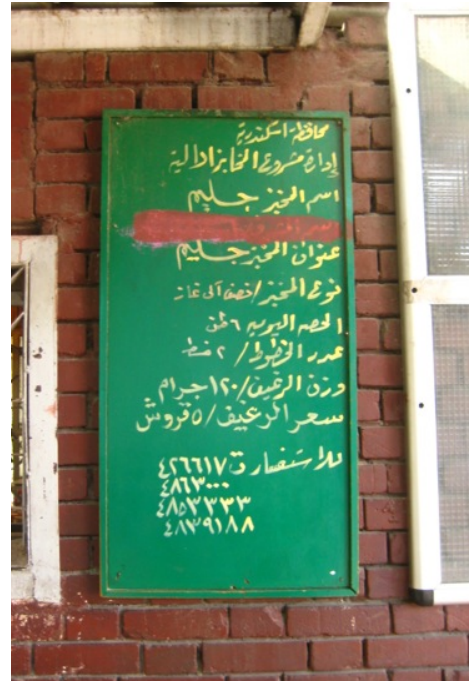 محافظة اسكندرية
إدارة مشروع المخابز الالية
اسم المخبز جليم
عنوان المخبز جليم
نوع المخبز / نصف آلى غاز
الحصه اليوميه ٦ طن
عدد الخطوط / ٢ خط
وزن الرغيف / ١٢٠ جرام
سعر الرغيف / ٥ قروش
للاستفسار ت ٤٢٦٦١٧
٤٨٦٣٠٠٠
٤٨٥٣٣٣٣
٤٨٣٩١٨٨